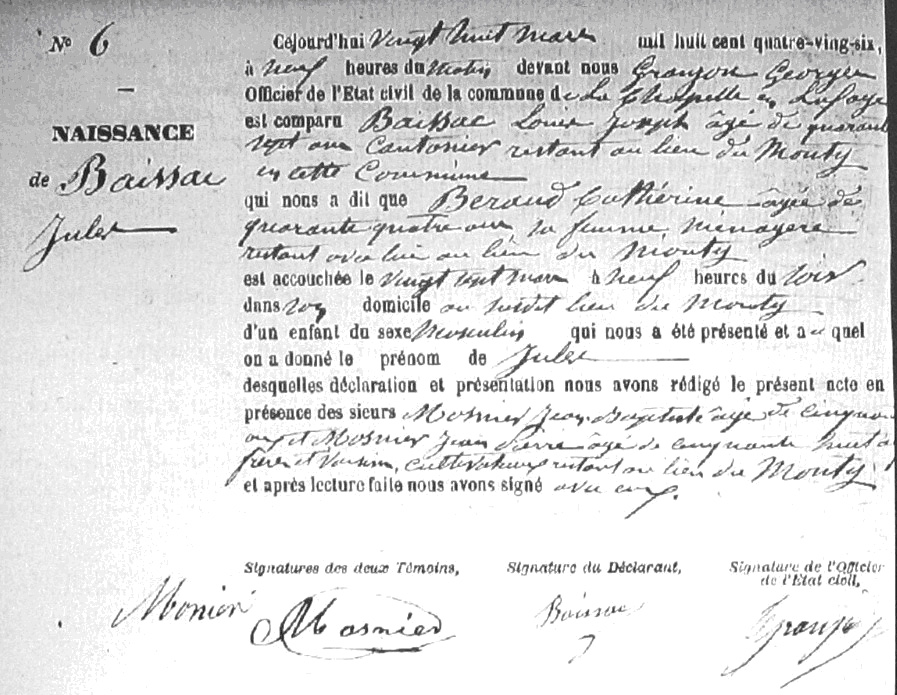 N° 6
NAISSANCE
de Baissac
Jules
Cejourd'hui vingt huit mars mil huit cent quatre-ving-six,
à neuf heures du matin devant nous Granjon Georges
Officier de l'Etat civil de la commune de La Chapelle en Lafaye
est comparu Baissac Louis Joseph âgé de quarante
sept ans Cantonier restant au lieu du Monty
en cette Commune
qui nous a dit que Beraud Cathérine âgée de
quarante quatre ans sa femme ménagère
restant avec lui au lieu du Monty
est accouchée le vingt sept mars à neuf heures du soir
dans son domicile au susdit lieu du Monty
d'un enfant du sexe Masculin qui nous a été présenté et auquel
on a donné le prénom de Jules
desquelles déclaration et présentation nous avons rédigé le présent acte en
présence des sieurs Mosnier Jean Baptiste âgé de cinquante
ans et Mosnier Jean Pierre âgé de cinquante huit
frère et Voisin, cultivateurs restant au lieu du Monty
et après lecture faite nous avons signé avec eux.
Signatures des deux Témoins,
Signature du Déclarant,
Signature de l'Officier
de l'Etat civil,
Monier
Mosnier
Baissac
Granjon